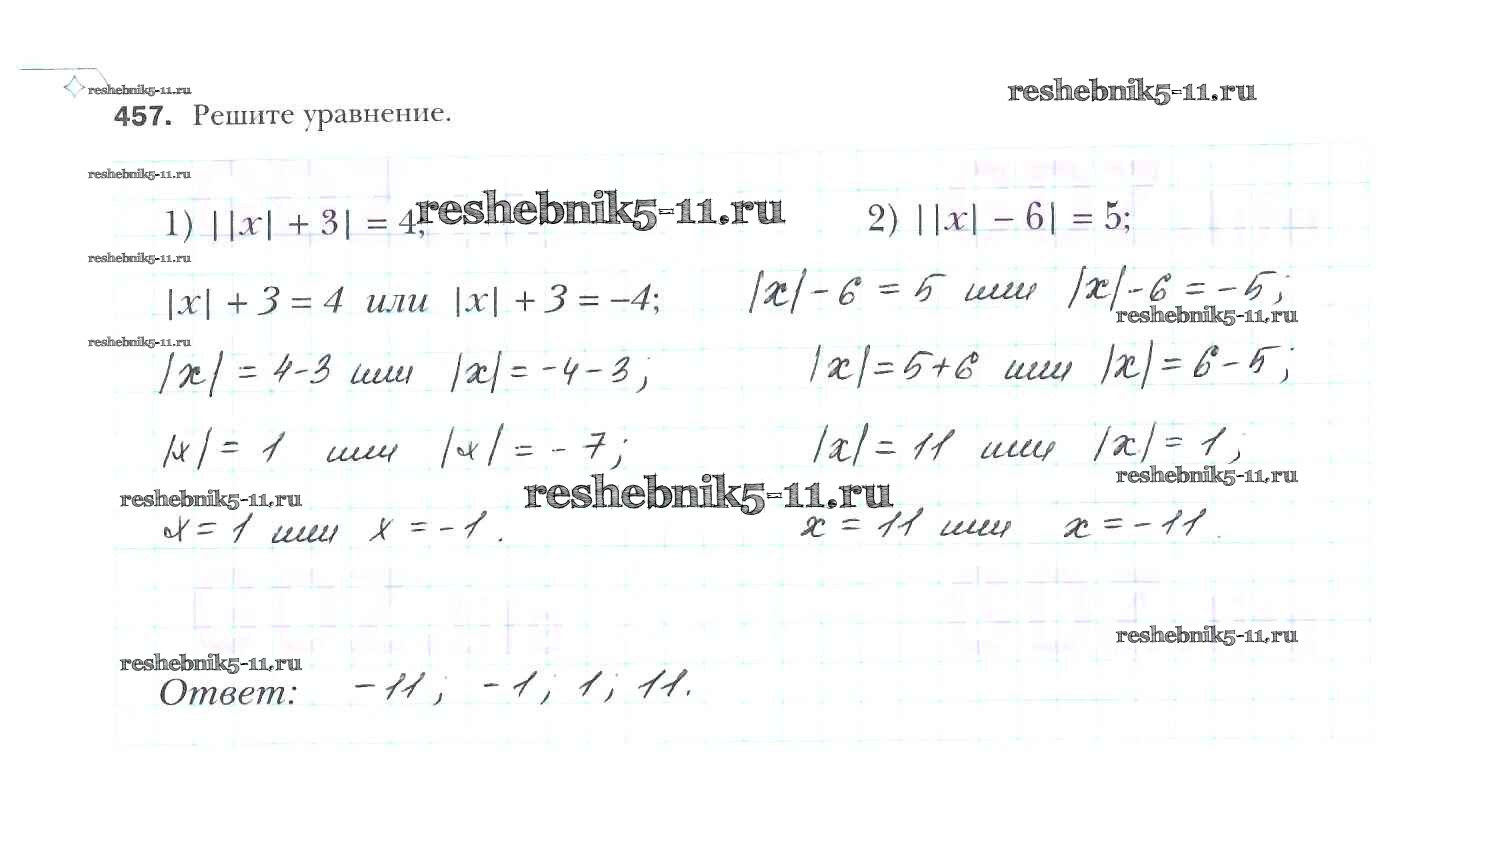 reshebnik5-11.ru
reshebnik5-11.ru
457. Решите уравнение.
reshebnik5-11.ru
1) ||x| + 3| = 4;
reshebnik5-11.ru
2) ||x| − 6| = 5;
reshebnik5-11.ru
|x| + 3 = 4 или |x| + 3 = −4;
|x| − 6 = 5 или |x| − 6 = −5;
reshebnik5-11.ru
reshebnik5-11.ru
|x| = 4 − 3 или |x| = −4 − 3;
|x| = 5 + 6 или |x| = 6 − 5;
|x| = 1 или |x| = −7;
|x| = 11 или |x| = 1;
reshebnik5-11.ru
reshebnik5-11.ru
reshebnik5-11.ru
x = 1 или x = −1.
x = 11 или x = −11.
reshebnik5-11.ru
reshebnik5-11.ru
Ответ: −11; −1; 1; 11.